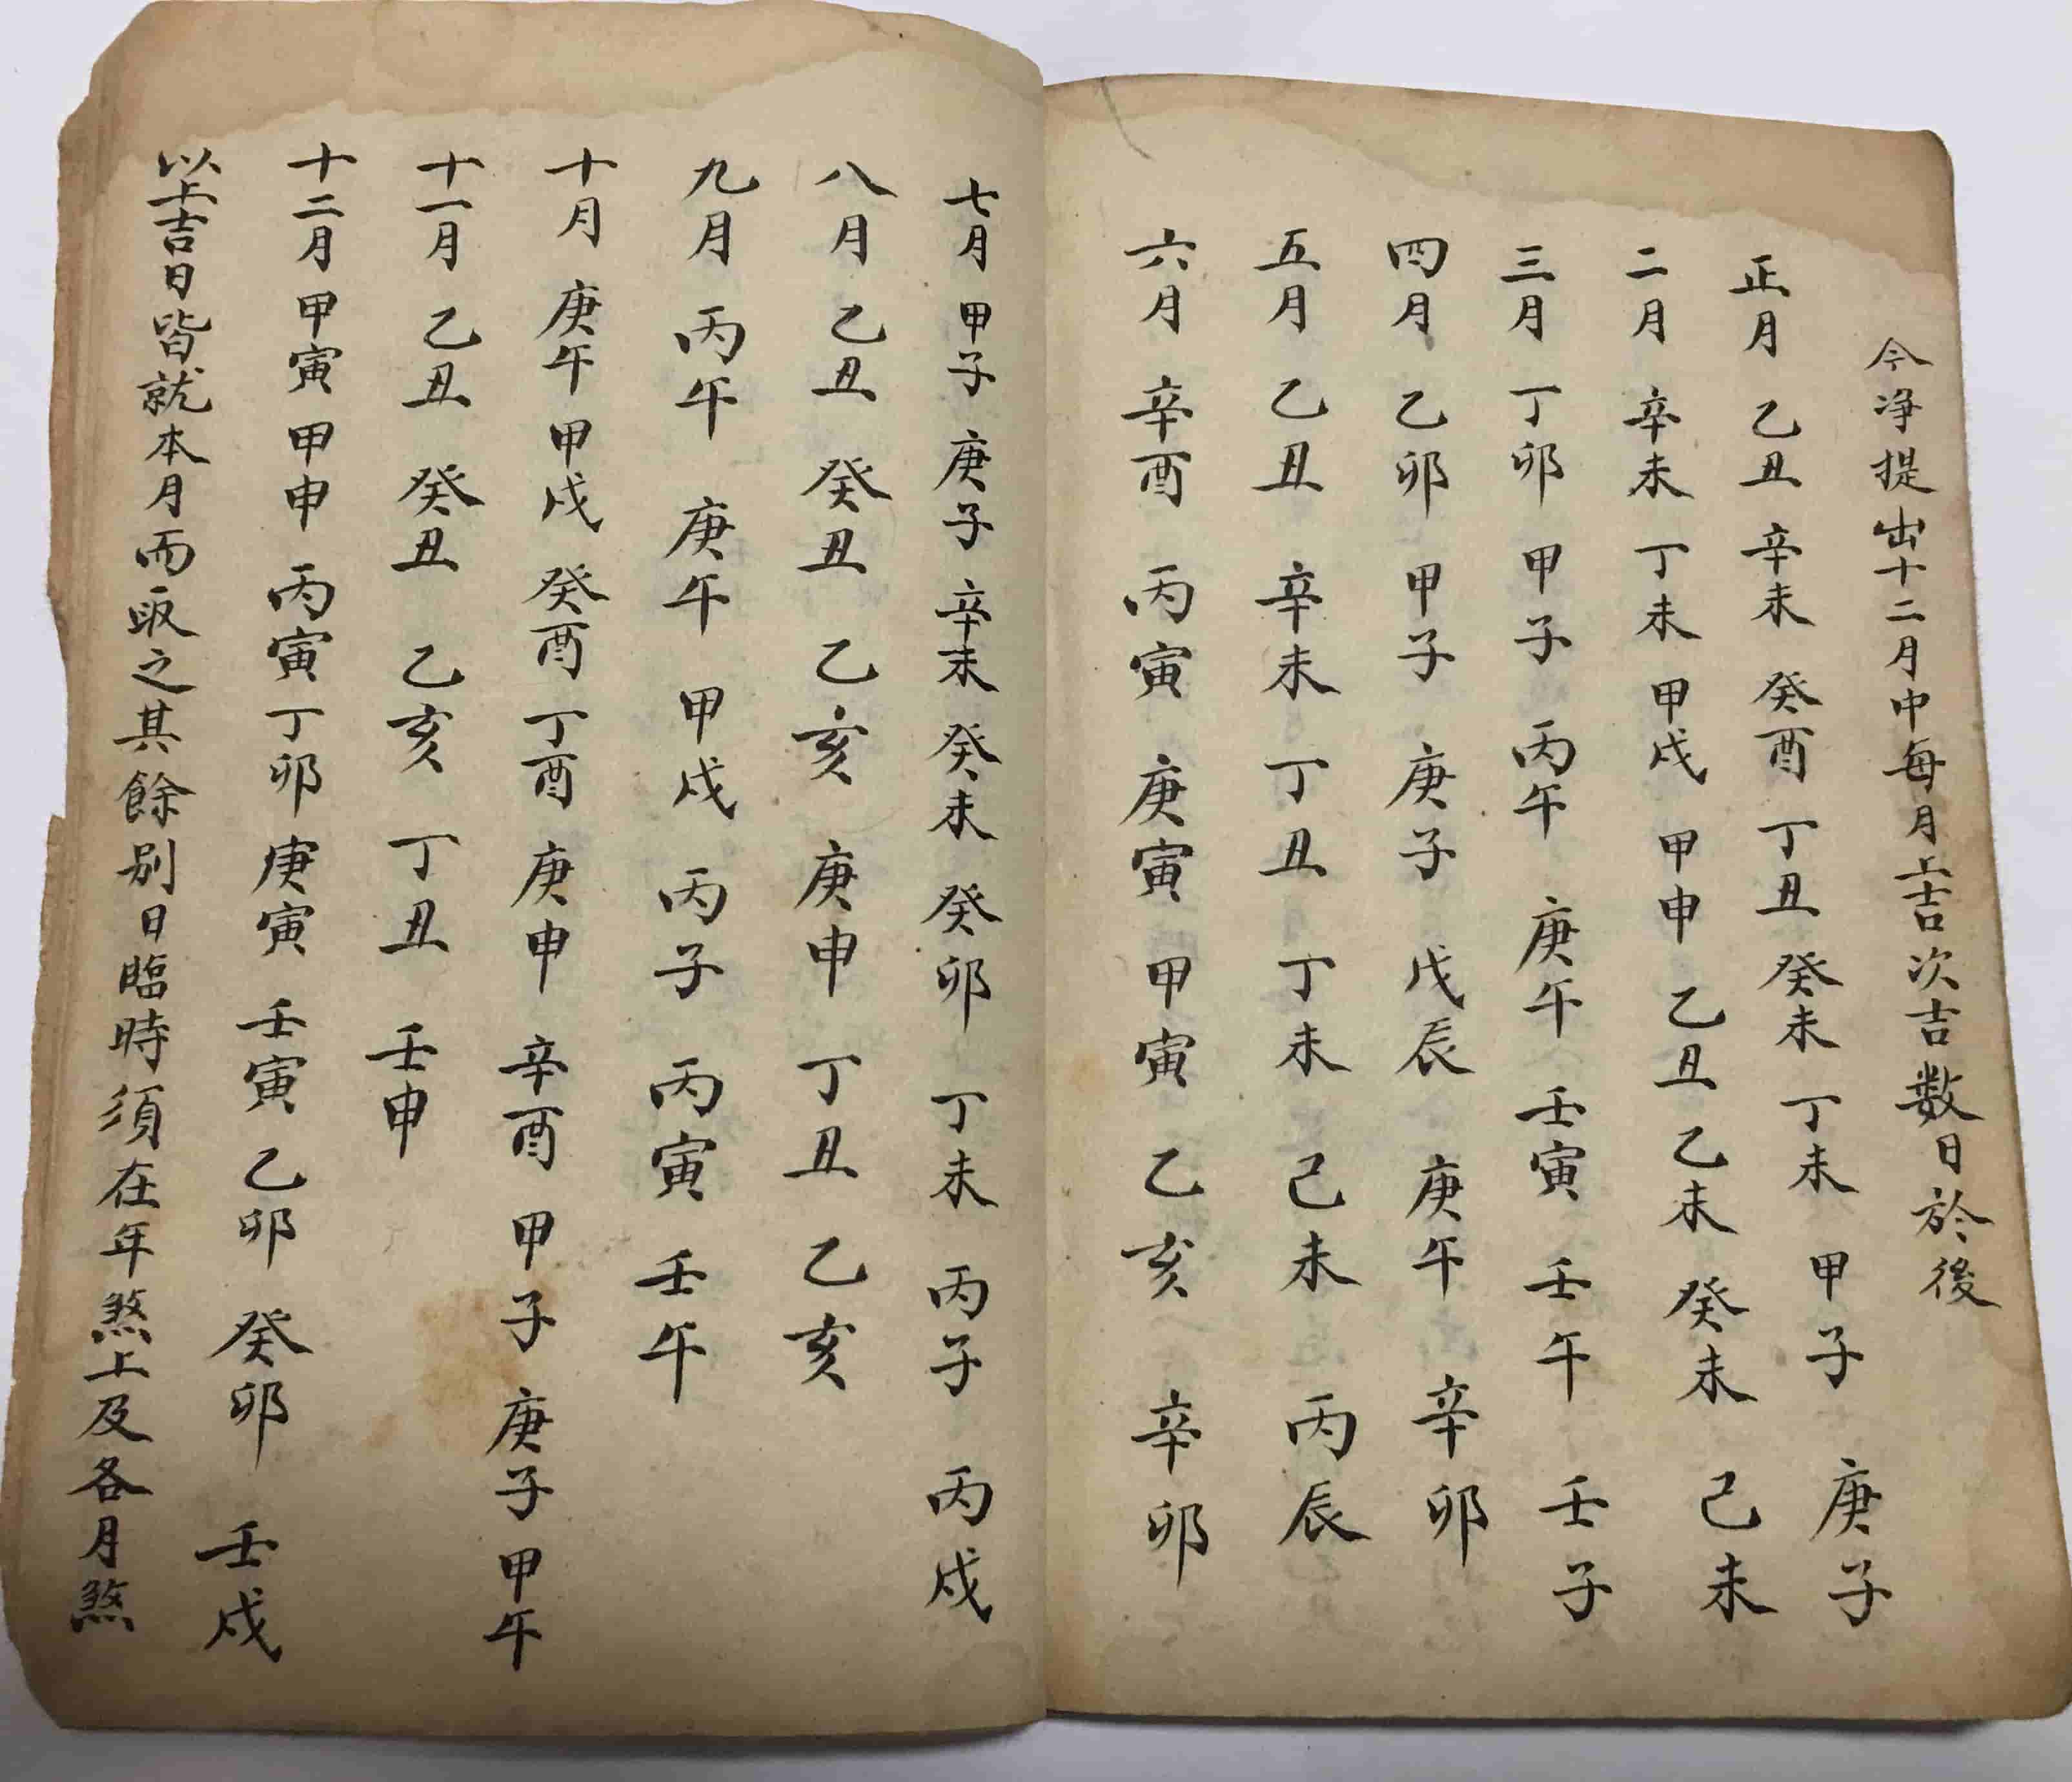 今净提出十二月中每月上吉次吉数日於後
正月 乙丑 辛未 癸酉 丁丑 癸未 丁未 甲子 庚子
二月 辛未 丁未 甲戌 甲申 乙丑 乙未 癸未 己未
三月 丁卯 甲子 丙午 庚午 壬寅 壬午 壬子
四月 乙卯 甲子 庚子 戊辰 庚午 辛卯
五月 乙丑 辛未 丁丑 丁未 己未 丙辰
六月 辛酉 丙寅 庚寅 甲寅 乙亥 辛卯
七月 甲子 庚子 辛未 癸未 癸卯 丁未 丙子 丙戌
八月 乙丑 癸丑 乙亥 庚申 丁丑 乙亥
九月 丙午 庚午 甲戌 丙子 丙寅 壬午
十月 庚午 甲戌 癸酉 丁酉 庚申 辛酉 甲子 庚子 甲午
十一月 乙丑 癸丑 乙亥 丁丑 壬申
十二月 甲寅 甲申 丙寅 丁卯 庚寅 壬寅 乙卯 癸卯 壬戌
以上吉日皆就本月而取之其餘别日臨時須在年煞上及各月煞